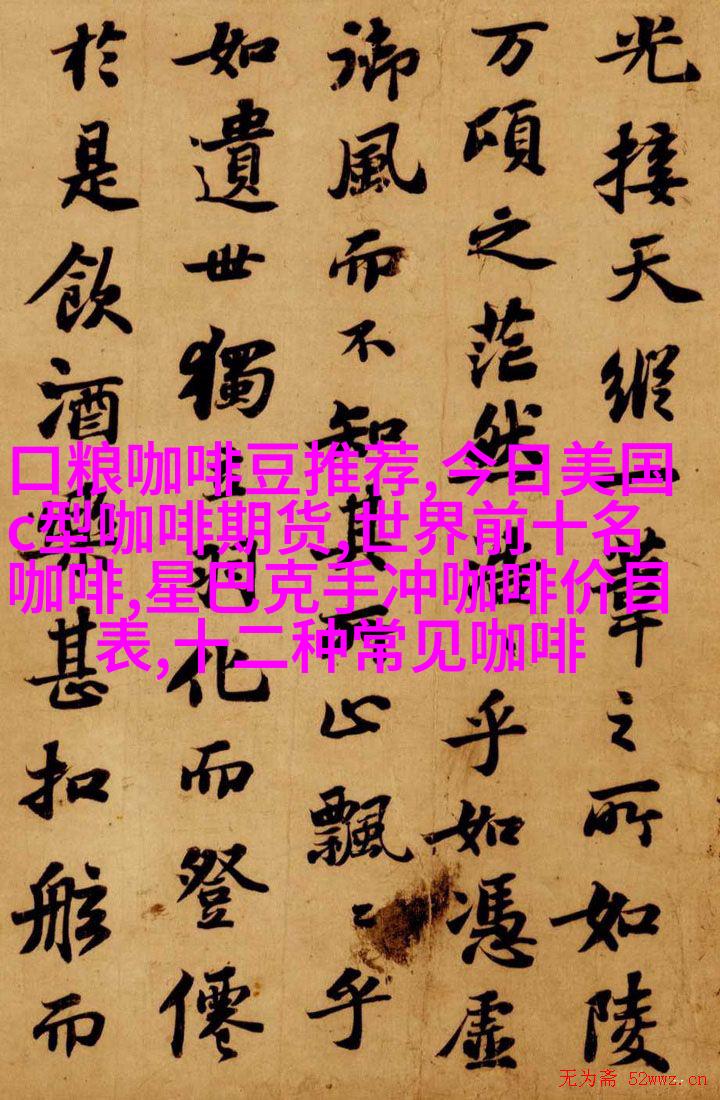 光接天縱一葦之所如陵
万頃之茫然浩〻乎如憑虛
御風而不知其所止飄〻乎
如遺世獨立羽化而登僊
於是飲酒樂甚扣舷而
口粮咖啡豆推荐,今日美国
c型咖啡期货,世界前十名
咖啡,星巴克手冲咖啡价目
表,十二种常见咖啡
无为斋 52wwz.cn